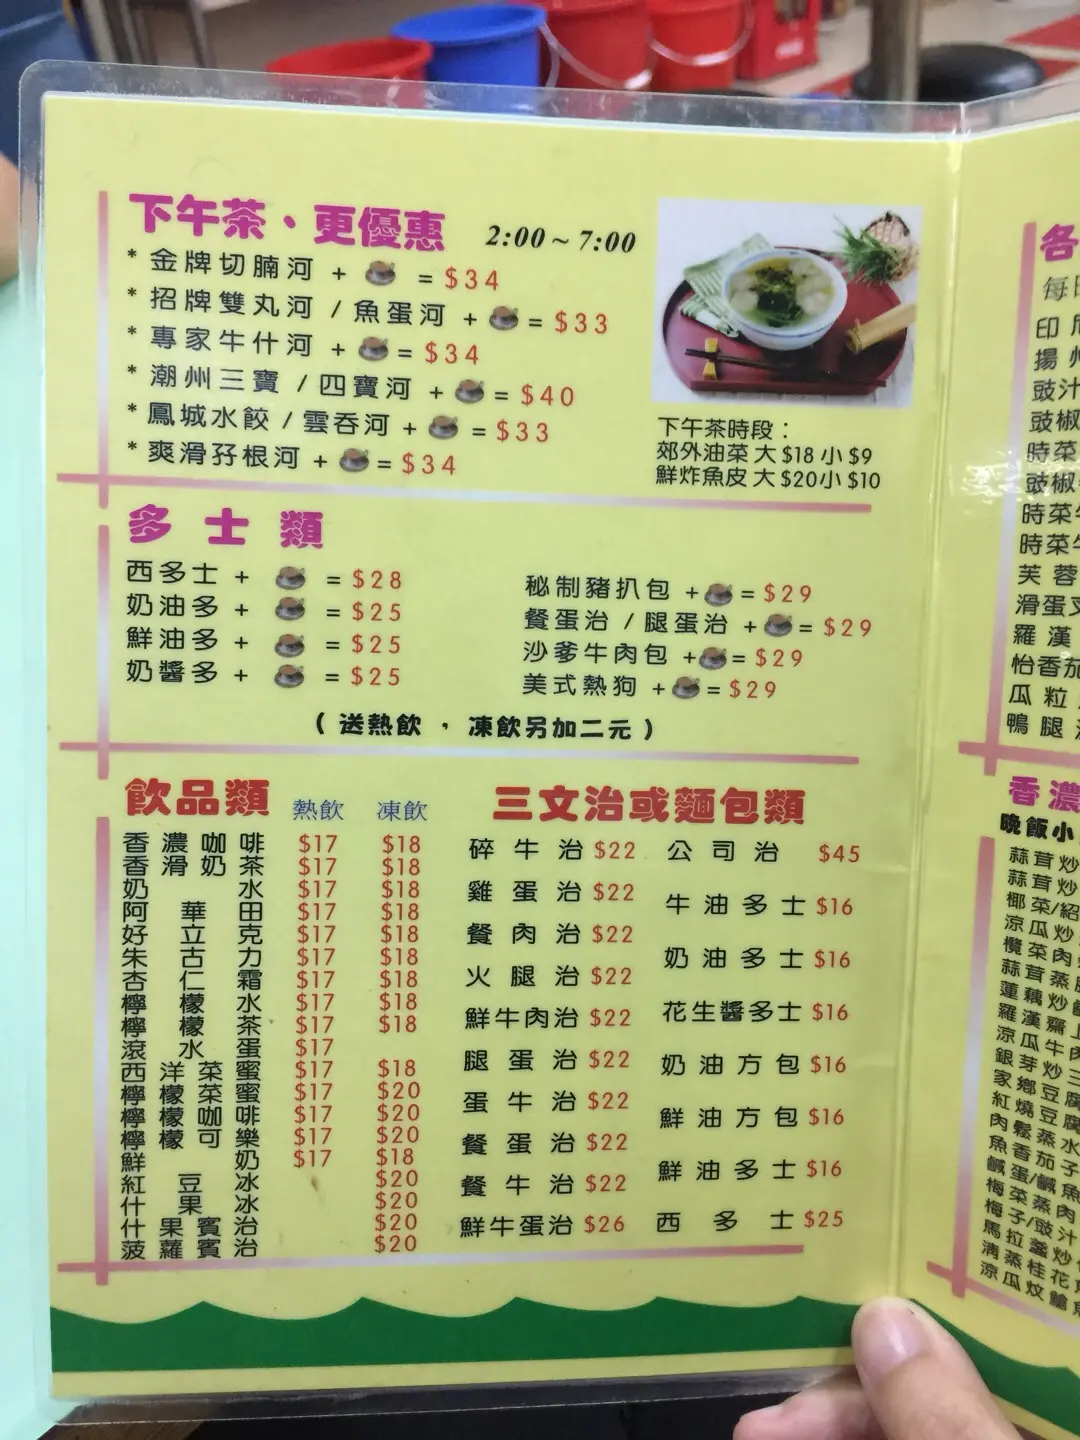 下午茶、更優惠 2:00~7:00
* 金牌切腩河 + = $34
* 招牌雙丸河 / 魚蛋河 + = $33
* 專家牛什河 + = $34
* 潮州三寶 / 四寶河 + = $40
* 鳳城水餃 / 雲吞河 + = $33
* 爽滑孖根河 + = $34
下午茶時段：
郊外油菜 大 $18 小 $9
鮮炸魚皮 大 $20 小 $10
多士類
西多士 + = $28
奶油多 + = $25
鮮油多 + = $25
奶醬多 + = $25
秘制豬扒包 + = $29
餐蛋治 / 腿蛋治 + = $29
沙爹牛肉包 + = $29
美式熱狗 + = $29
( 送熱飲 ， 凍飲另加二元 )
飲品類 熱飲 凍飲
香濃咖啡 $17 $18
香滑奶茶 $17 $18
奶水 $17 $18
阿華田 $17 $18
好立克 $17 $18
朱古力 $17 $18
杏仁霜 $17 $18
檸檬水 $17 $18
檸檬茶 $17 $18
滾水蛋 $17
西洋菜蜜 $17 $18
檸檬菜蜜 $17 $20
檸檬咖啡 $17 $20
檸檬可樂 $17 $20
鮮奶 $17 $18
紅豆冰 $20
什果冰 $20
什果賓治 $20
菠蘿賓治 $20
三文治或麵包類
碎牛治 $22
雞蛋治 $22
餐肉治 $22
火腿治 $22
鮮牛肉治 $22
腿蛋治 $22
蛋牛治 $22
餐蛋治 $22
餐牛治 $22
鮮牛蛋治 $26
公司治 $45
牛油多士 $16
奶油多士 $16
花生醬多士 $16
奶油方包 $16
鮮油方包 $16
鮮油多士 $16
西多士 $25
各
每日
印
揚州
豉汁
豉椒
時菜
豉椒
時菜牛
時菜牛
芙蓉
滑蛋叉
羅漢
怡香茄
瓜粒
鴨腿
香濃
晚飯小
蒜茸炒
蒜茸炒
椰菜/紹
涼瓜炒
欖菜肉
蒜茸蒸
蓮藕炒
羅漢齋上
涼瓜牛肉
銀芽炒三
家鄉豆腐
紅燒豆腐
肉鬆蒸水
魚香茄子
鹹蛋/鹹魚
梅菜蒸肉
梅子/豉汁
馬拉盞炒
清蒸桂花
涼瓜炆